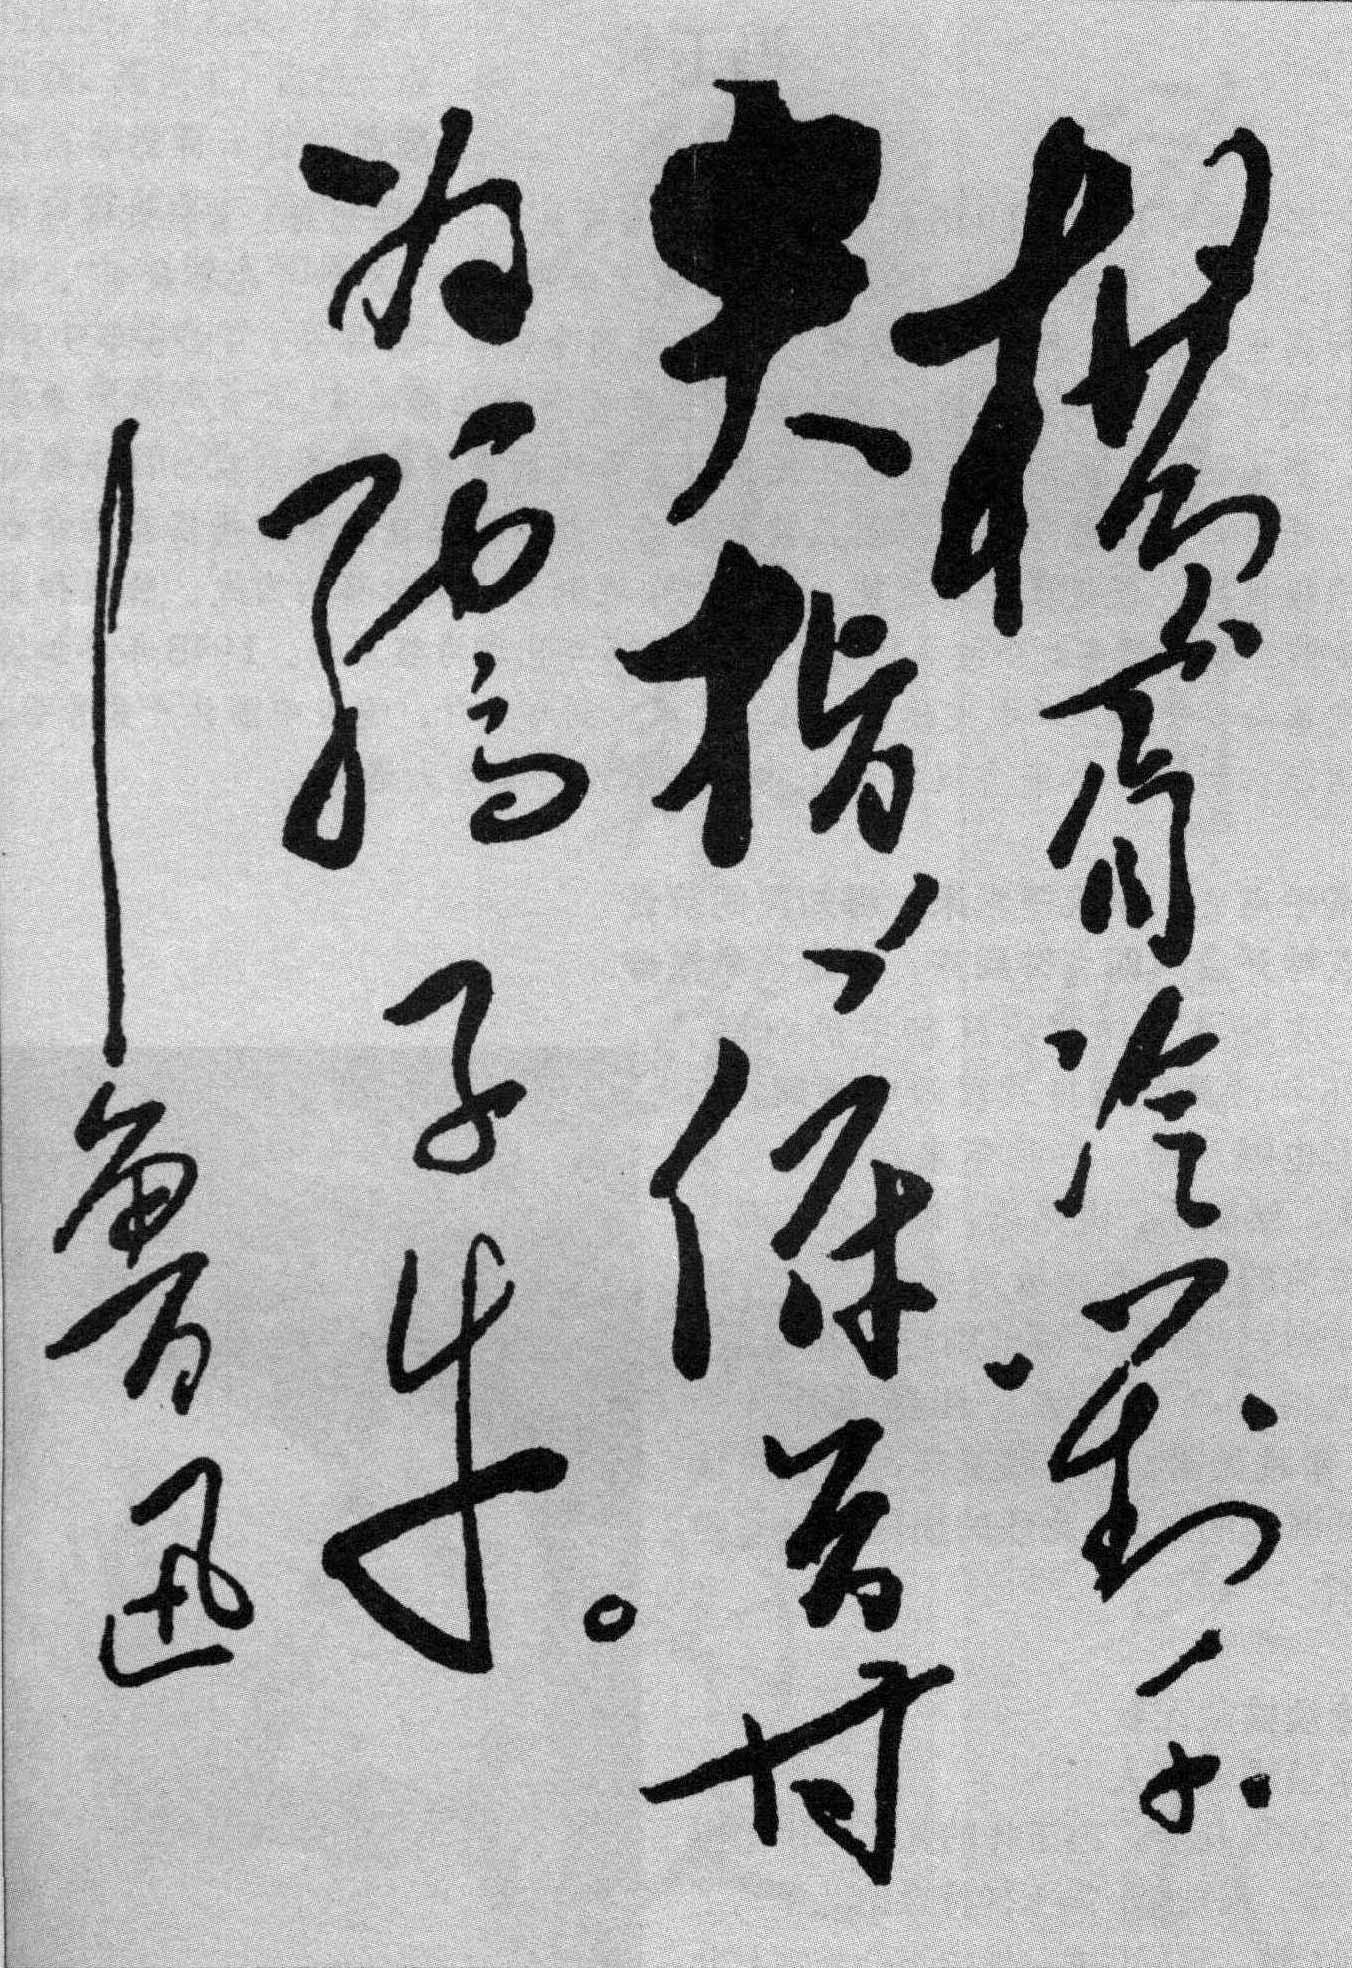 橫眉冷對千
夫指，俯首甘
为孺子牛。
——魯迅